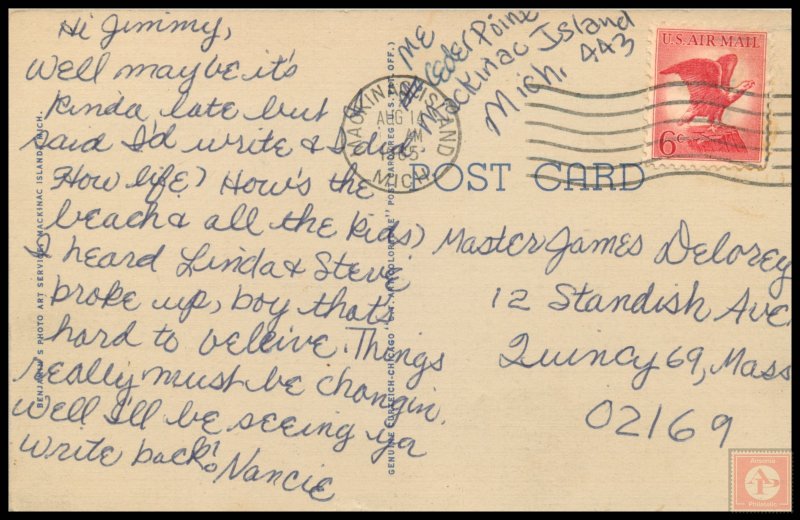 Hi Jimmy,
Well maybe it's
kinda late but
said I'd write & I did.
How life? How's the
beach & all the kids?
I heard Linda & Steve
broke up, boy that's
hard to beleive. Things
really must be changin.
Well I'll be seeing ya
write back! Nancie
ME
Ceder Point
Mackinac Island
Mich. 443
MACKINAC ISLAND
AUG 14
AM
1965
MICH
U.S. AIR MAIL
6c
POST CARD
Master James Delorey
12 Standish Ave.
Quincy 69, Mass
02169
BENJAMIN'S PHOTO ART SERVICE, MACKINAC ISLAND, MICH.
GENUINE CURTEICH-CHICAGO "C.T. ART-COLORTONE" POST CARD (REG. U.S. PAT. OFF.)
Ansonia
Philatelic